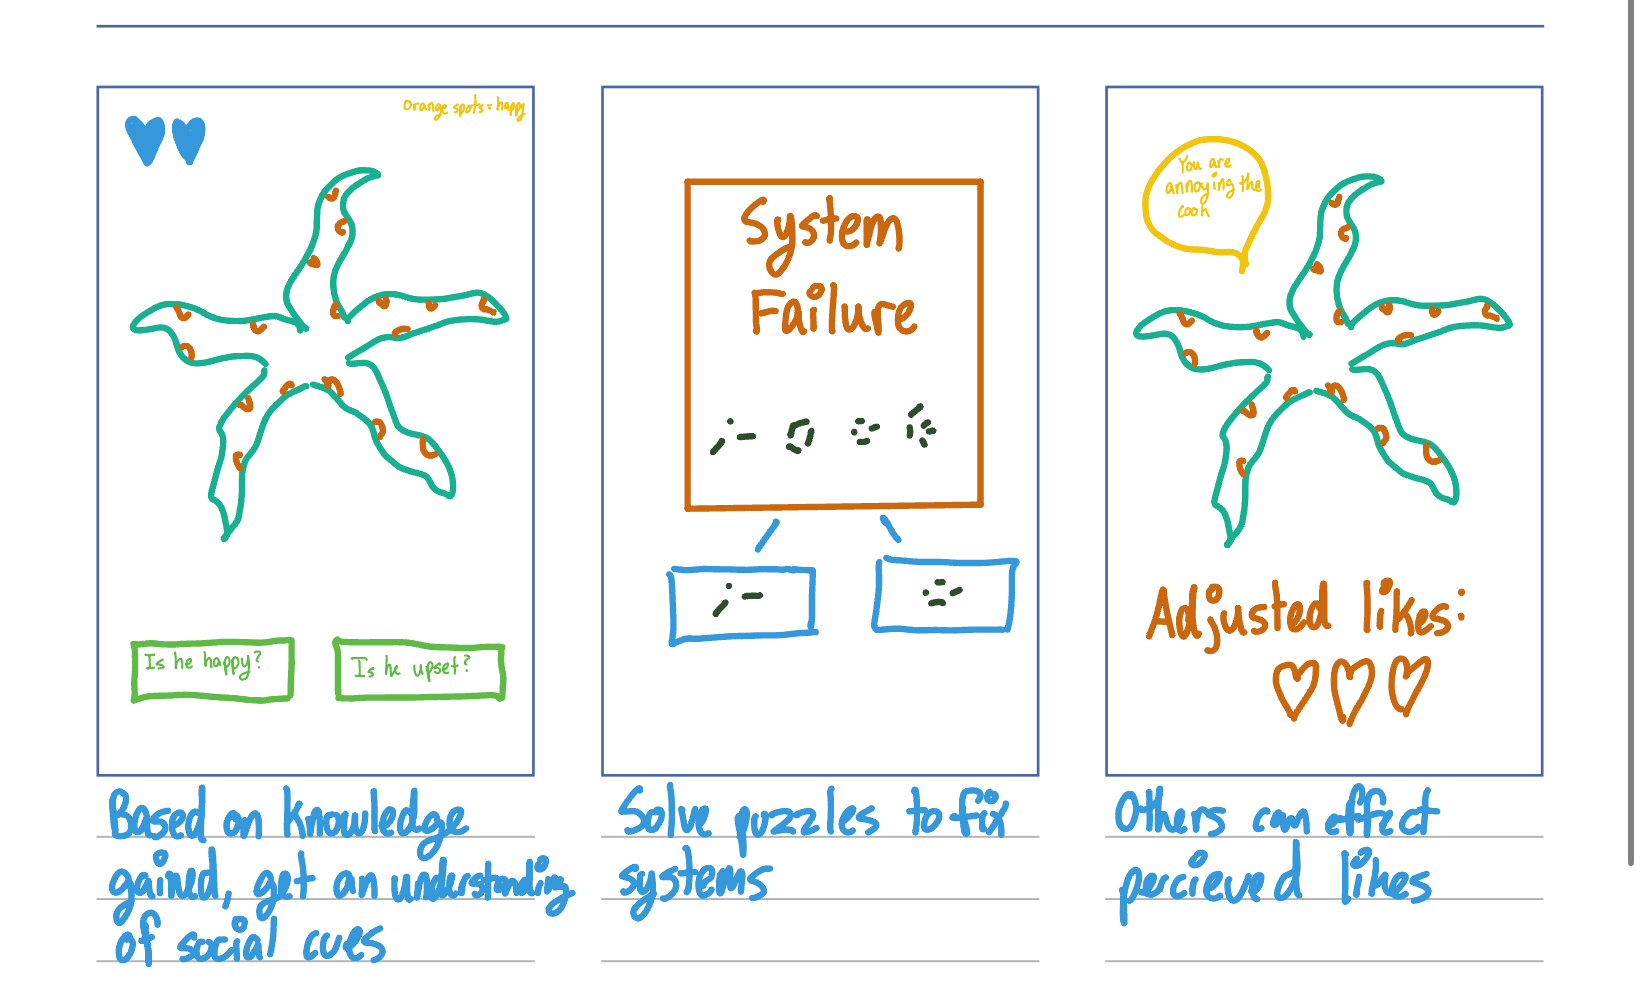 Orange spots = happy
Is he happy?
Is he upset?
Based on knowledge
gained, get an understanding
of social cues
System
Failure
Solve puzzles to fix
systems
You are
annoying the
cook
Adjusted likes:
Others can effect
percieved likes